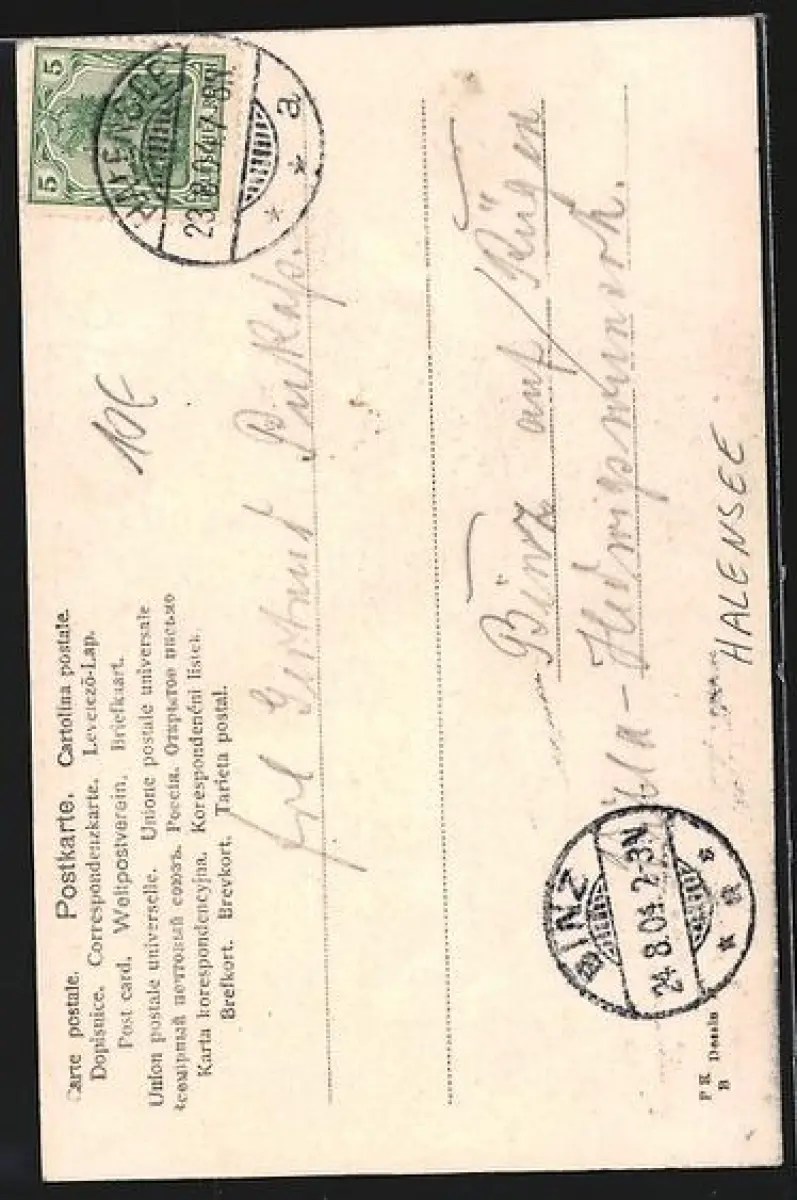 Carte postale. Postkarte. Cartolina postale.
Dopisnice. Correspondenzkarte. Levelező-Lap.
Post card. Weltpostverein. Briefkaart.
Union postale universelle. Unione postale universale
всемірный почтовый союзъ. Россія. Открытое письмо
Karta korespondencyjna. Korespondenční listek.
Brefkort. Brevkort. Tarjeta postal.
5 5
DEUTSCHES REICH
HALENSEE
23.8.04
a
10€
Frl Gertrud
Binz auf/Rügen
Villa-Hedwigswunsch.
HALENSEE
BINZ
24.8.04.2-3N
a
P R
B Dessin